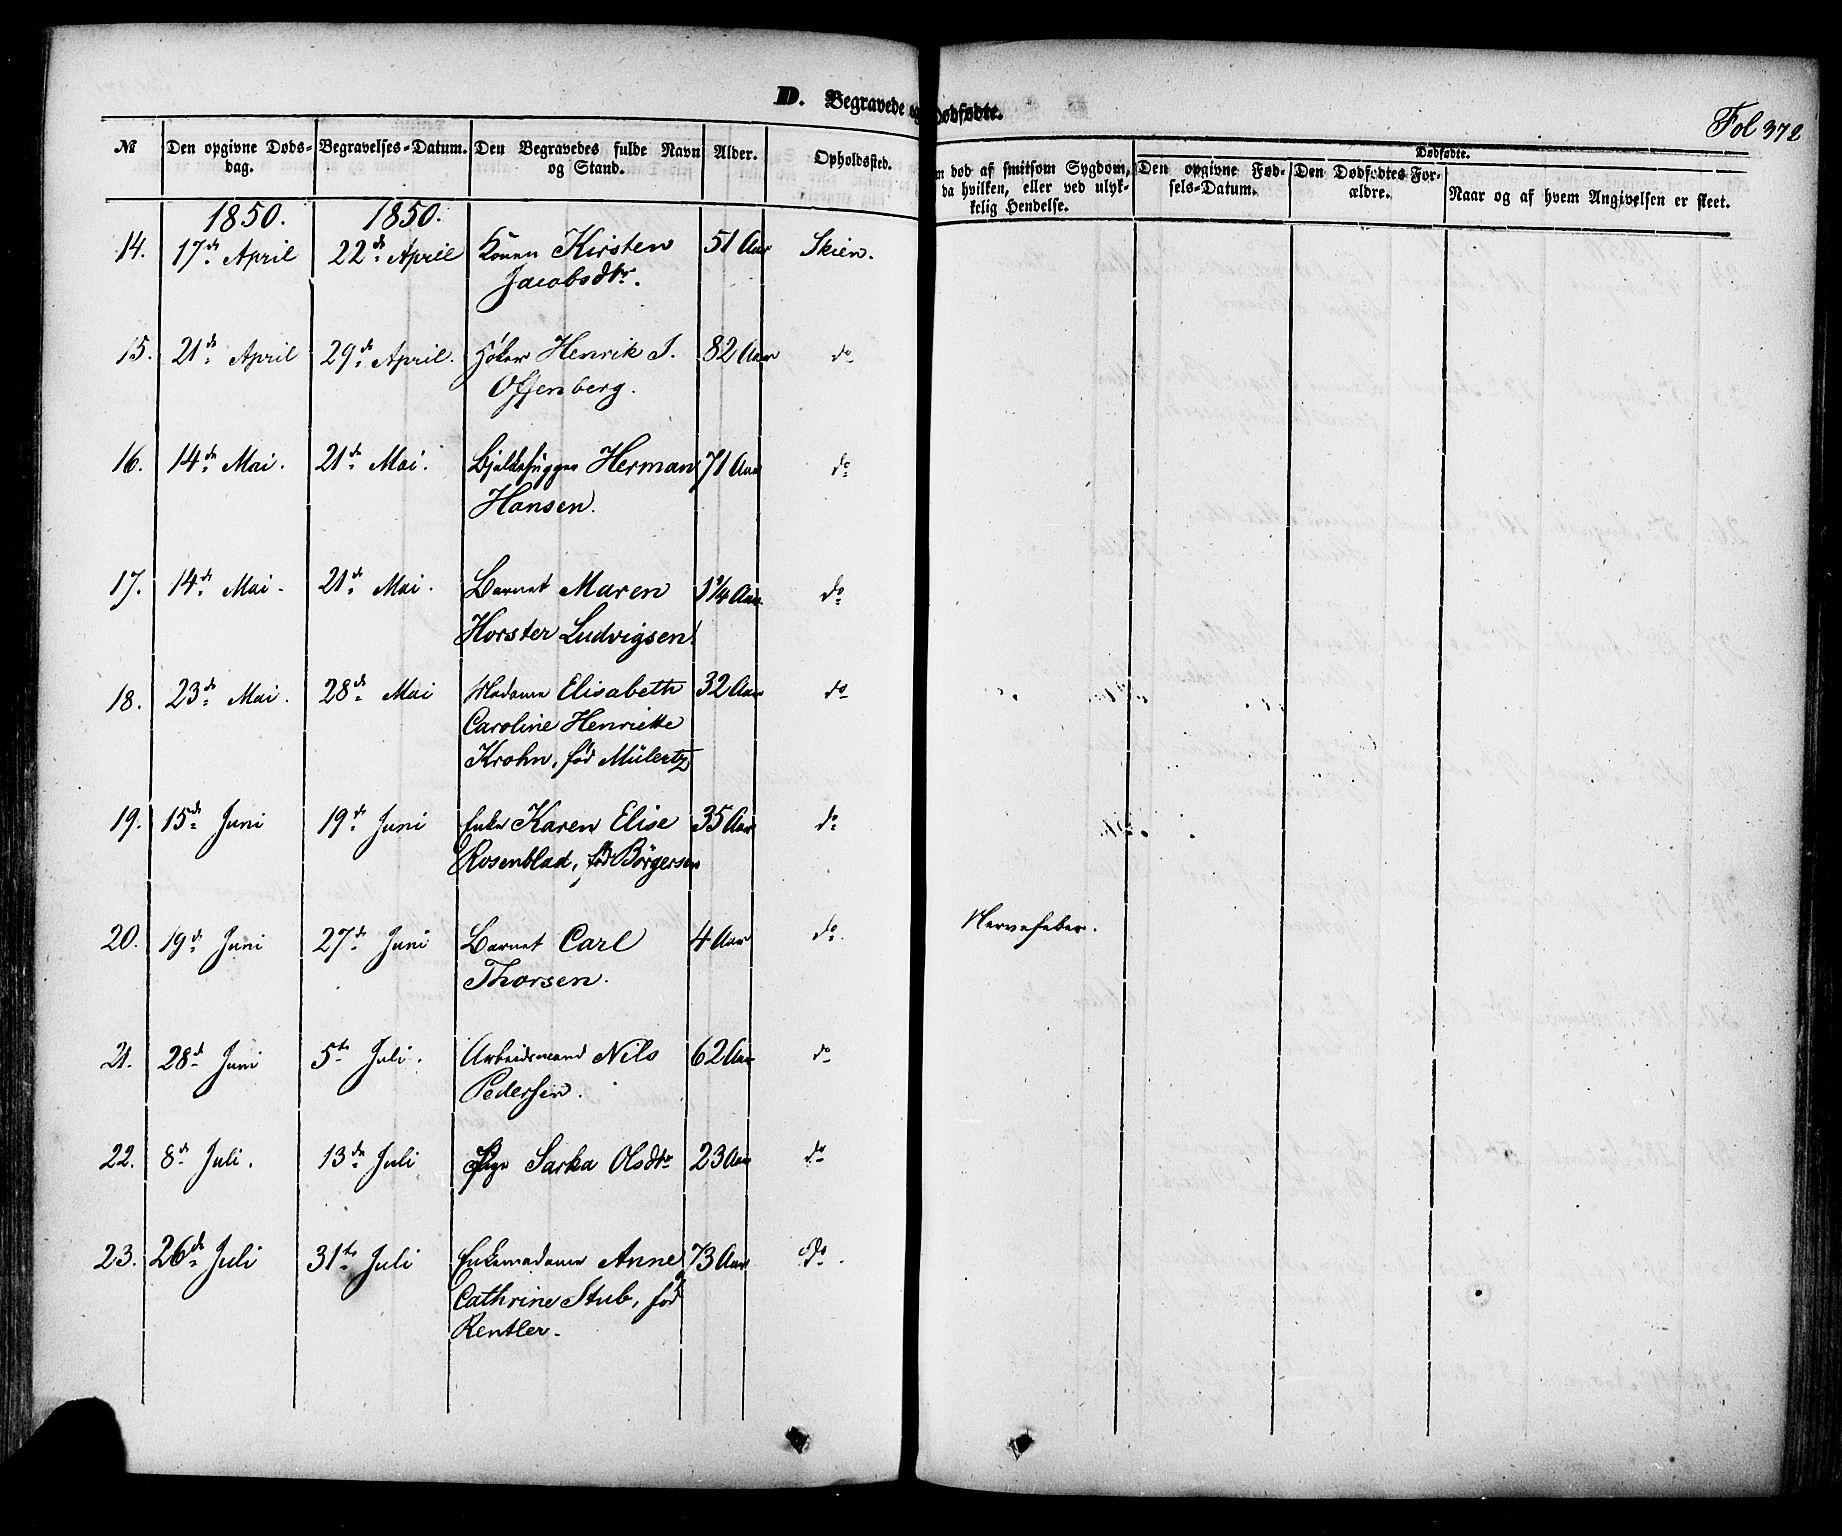 D. Begravede og Dødfødte.
Fol 372
№ Den opgivne Døds- Begravelses-Datum. Den Begravedes fulde Navn Alder. Opholdssted.
dag. og Stand.
m død af smitsom Sygdom, Den opgivne Fød- Den Dødfødtes For- Dødfødte.
da hvilken, eller ved ulyk- sels-Datum. ældre. Naar og af hvem Angivelsen er skeet.
kelig Hendelse.
1850. 1850.
14. 17de April 22de April Konen Kirsten 51 Aar Skien.
Jacobsdtr.
15. 21de April 29de April. Høker Henrik J. 82 Aar do
Offenberg.
16. 14de Mai. 21de Mai. Herman 71 Aar do
Hansen.
17. 14de Mai. 21de Mai. Barnet Maren 1 1/4 Aar do
Horster Ludvigsen.
18. 23de Mai. 28de Mai Madame Elisabeth 32 Aar do
Caroline Henriette
Krohn, fød Mülertz
19. 15de Juni 19de Juni Enke Karen Elise 35 Aar do
Rosenblad, fød Börgersen
20. 19de Juni 27de Juni Barnet Carl 4 Aar do. Nervefeber.
Thorsen.
21. 28de Juni 5te Juli. Arbeidsmand Nils 62 Aar do
Pedersen.
22. 8de Juli. 13de Juli Pige Sarka Olsdtr 23 Aar do
23. 26de Juli 31te Juli Enkemadame Anne 73 Aar do.
Cathrine Stub, fød
Rentler.